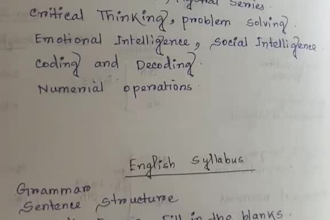 Series
Critical Thinking, problem solving.
Emotional Intelligence, Social Intelligence
Coding and Decoding.
Numerial operations
English Syllabus
Grammar
Sentence structure
Fill in the blanks